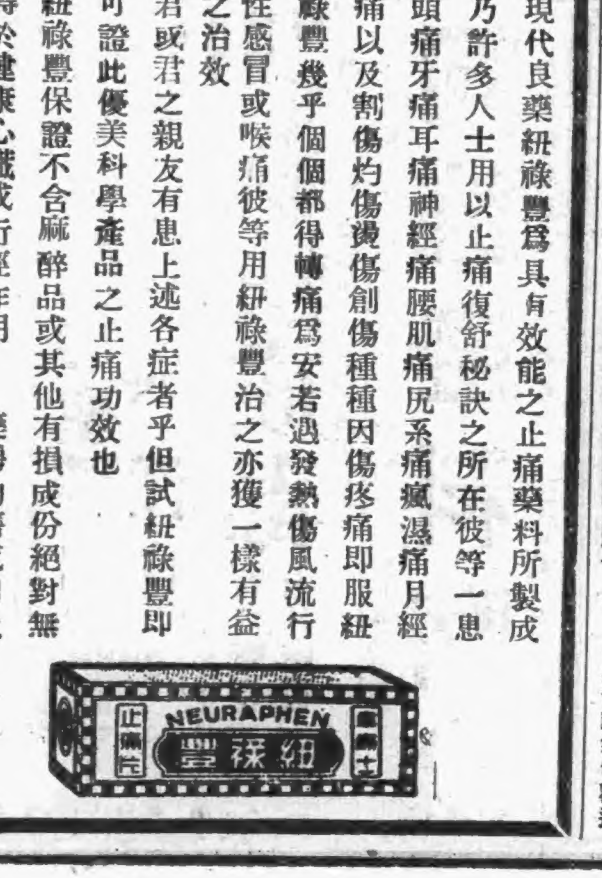 現代良藥紐祿豐爲具有效能之止痛藥料所製成
乃許多人士用以止痛復舒秘訣之所在彼等一患
頭痛牙痛耳痛神經痛腰肌痛尻系痛瘋濕痛月經
痛以及割傷灼傷燙傷創傷種種因傷疼痛即服紐
祿豐幾乎個個都得轉痛爲安若遇發熱傷風流行
性感冒或喉痛彼等用紐祿豐治之亦獲一樣有益
之治效
君或君之親友有患上述各症者乎但試紐祿豐即
可證此優美科學產品之止痛功效也
紐祿豐保證不含麻醉品或其他有損成份絕對無
NEURAPHEN
紐祿豐
止痛片